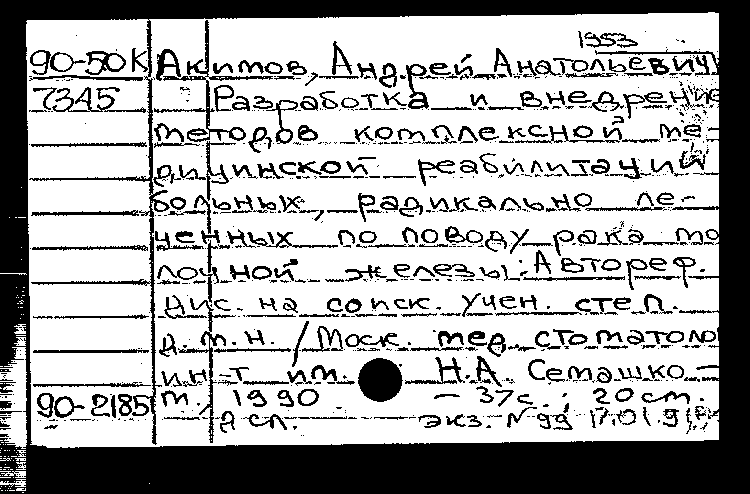 1953
90-50К Акимов, Андрей Анатольевич
7345 Разработка и внедрение
методов комплексной ме-
дицинской реабилитации
больных, радикально ле-
ченных по поводу рака мо
лочной железы: Автореф.
дис. на соиск. учен. степ.
д.м.н. / Моск. мед. стоматоло
ин-т им. Н.А. Семашко. -
90-2185 М., 1990 - 37с.; 20см.
экз. N 99 17.01.91